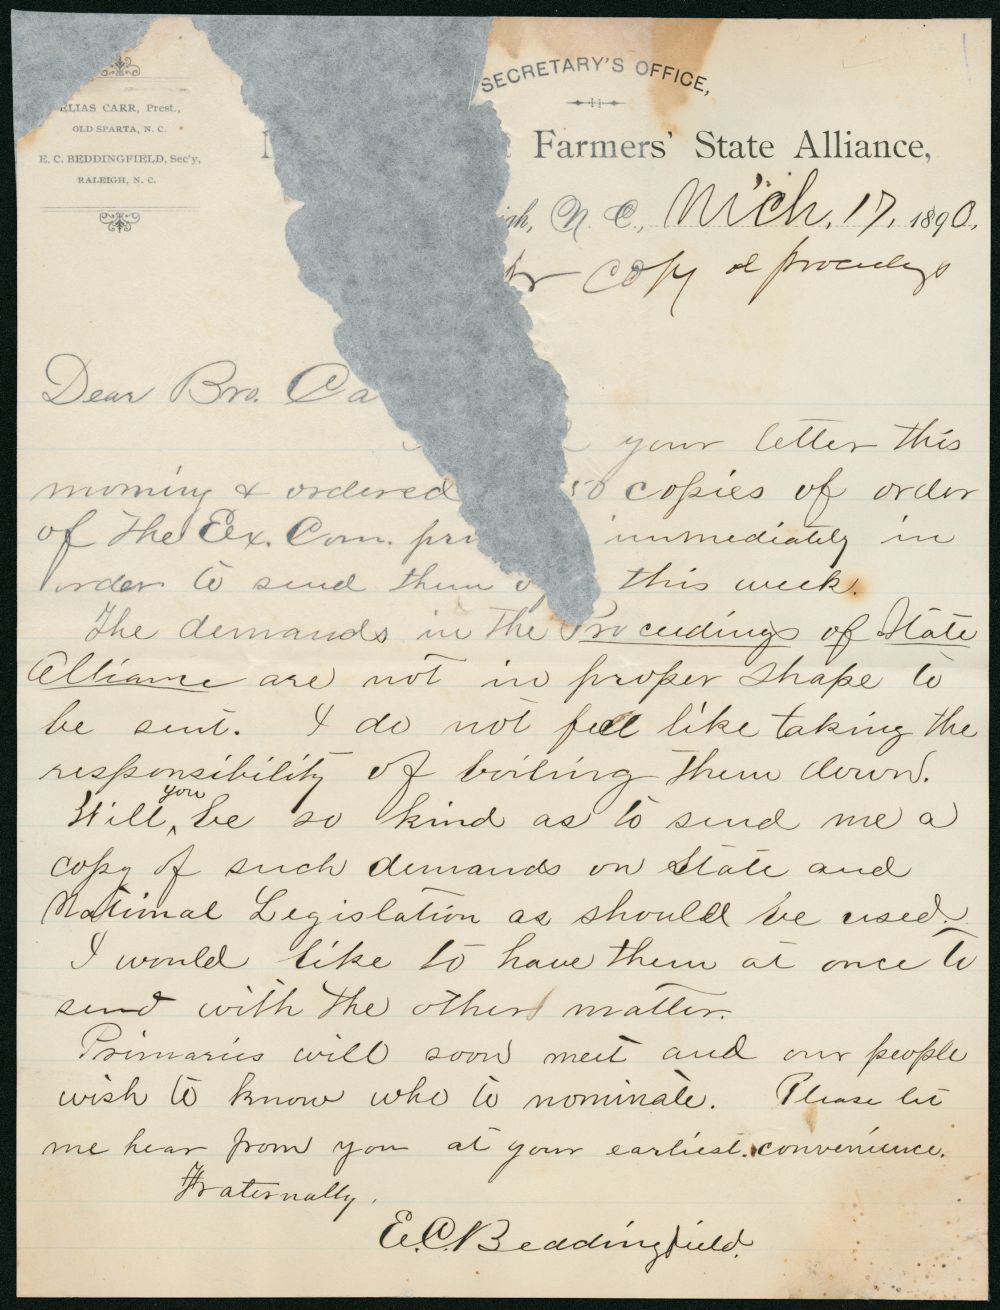 SECRETARY'S OFFICE,
ELIAS CARR, Prest.,
OLD SPARTA, N. C.
E. C. BEDDINGFIELD, Sec'y,
RALEIGH, N. C.
Farmers' State Alliance,
igh, N. C., Mch. 17, 1890.
for copy of proceedings
Dear Bro. Ca
your letter this
morning & ordered 50 copies of order
of the Ex. Com. pri immediately in
order to send them this week.
The demands in the Proceedings of State
Alliance are not in proper shape to
be sent. I do not feel like taking the
responsibility of boiling them down.
Will you be so kind as to send me a
copy of such demands on State and
National Legislation as should be used.
I would like to have them at once to
send with the other matter.
Primaries will soon meet and our people
wish to know who to nominate. Please let
me hear from you at your earliest convenience.
Fraternally,
E. C. Beddingfield.